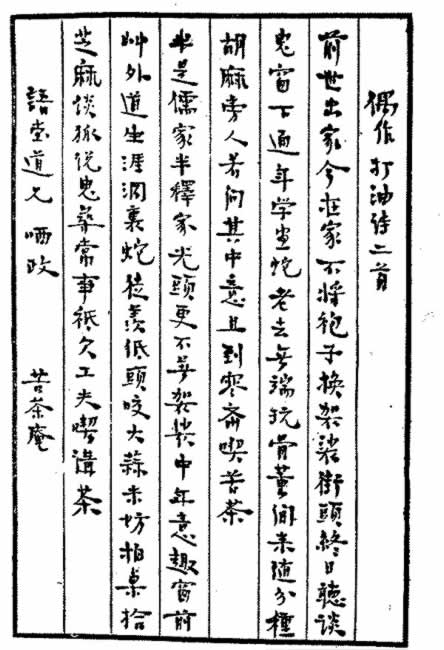 偶作打油詩二首
前世出家今在家不將袍子換袈裟街頭終日聽談
鬼窗下通年学畫蛇老去無端玩骨董閒來随分種
胡麻旁人若问其中意且到寒斋喫苦茶
半是儒家半釋家光頭更不著袈裟中年意趣窗前
艸外道生涯洞裏蛇徒羨低頭咬大蒜未妨拍桌拾
芝麻谈狐说鬼尋常事衹欠工夫喫講茶
語堂道兄 哂政 苦茶庵